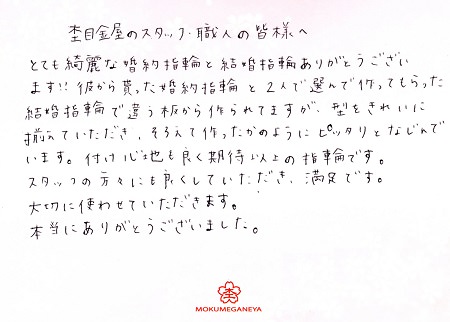 杢目金屋のスタッフ・職人の皆様へ
とても綺麗な婚約指輪と結婚指輪ありがとうござい
ます!!彼から貰った婚約指輪と2人で選んで作ってもらった
結婚指輪で違う板から作られてますが、型をきれいに
揃えていただき、そろえて作ったかのようにピッタリとなじんで
います。付け心地も良く期待以上の指輪です。
スタッフの方々にも良くしていただき、満足です。
大切に使わせていただきます。
本当にありがとうございました。
MOKUMEGANEYA